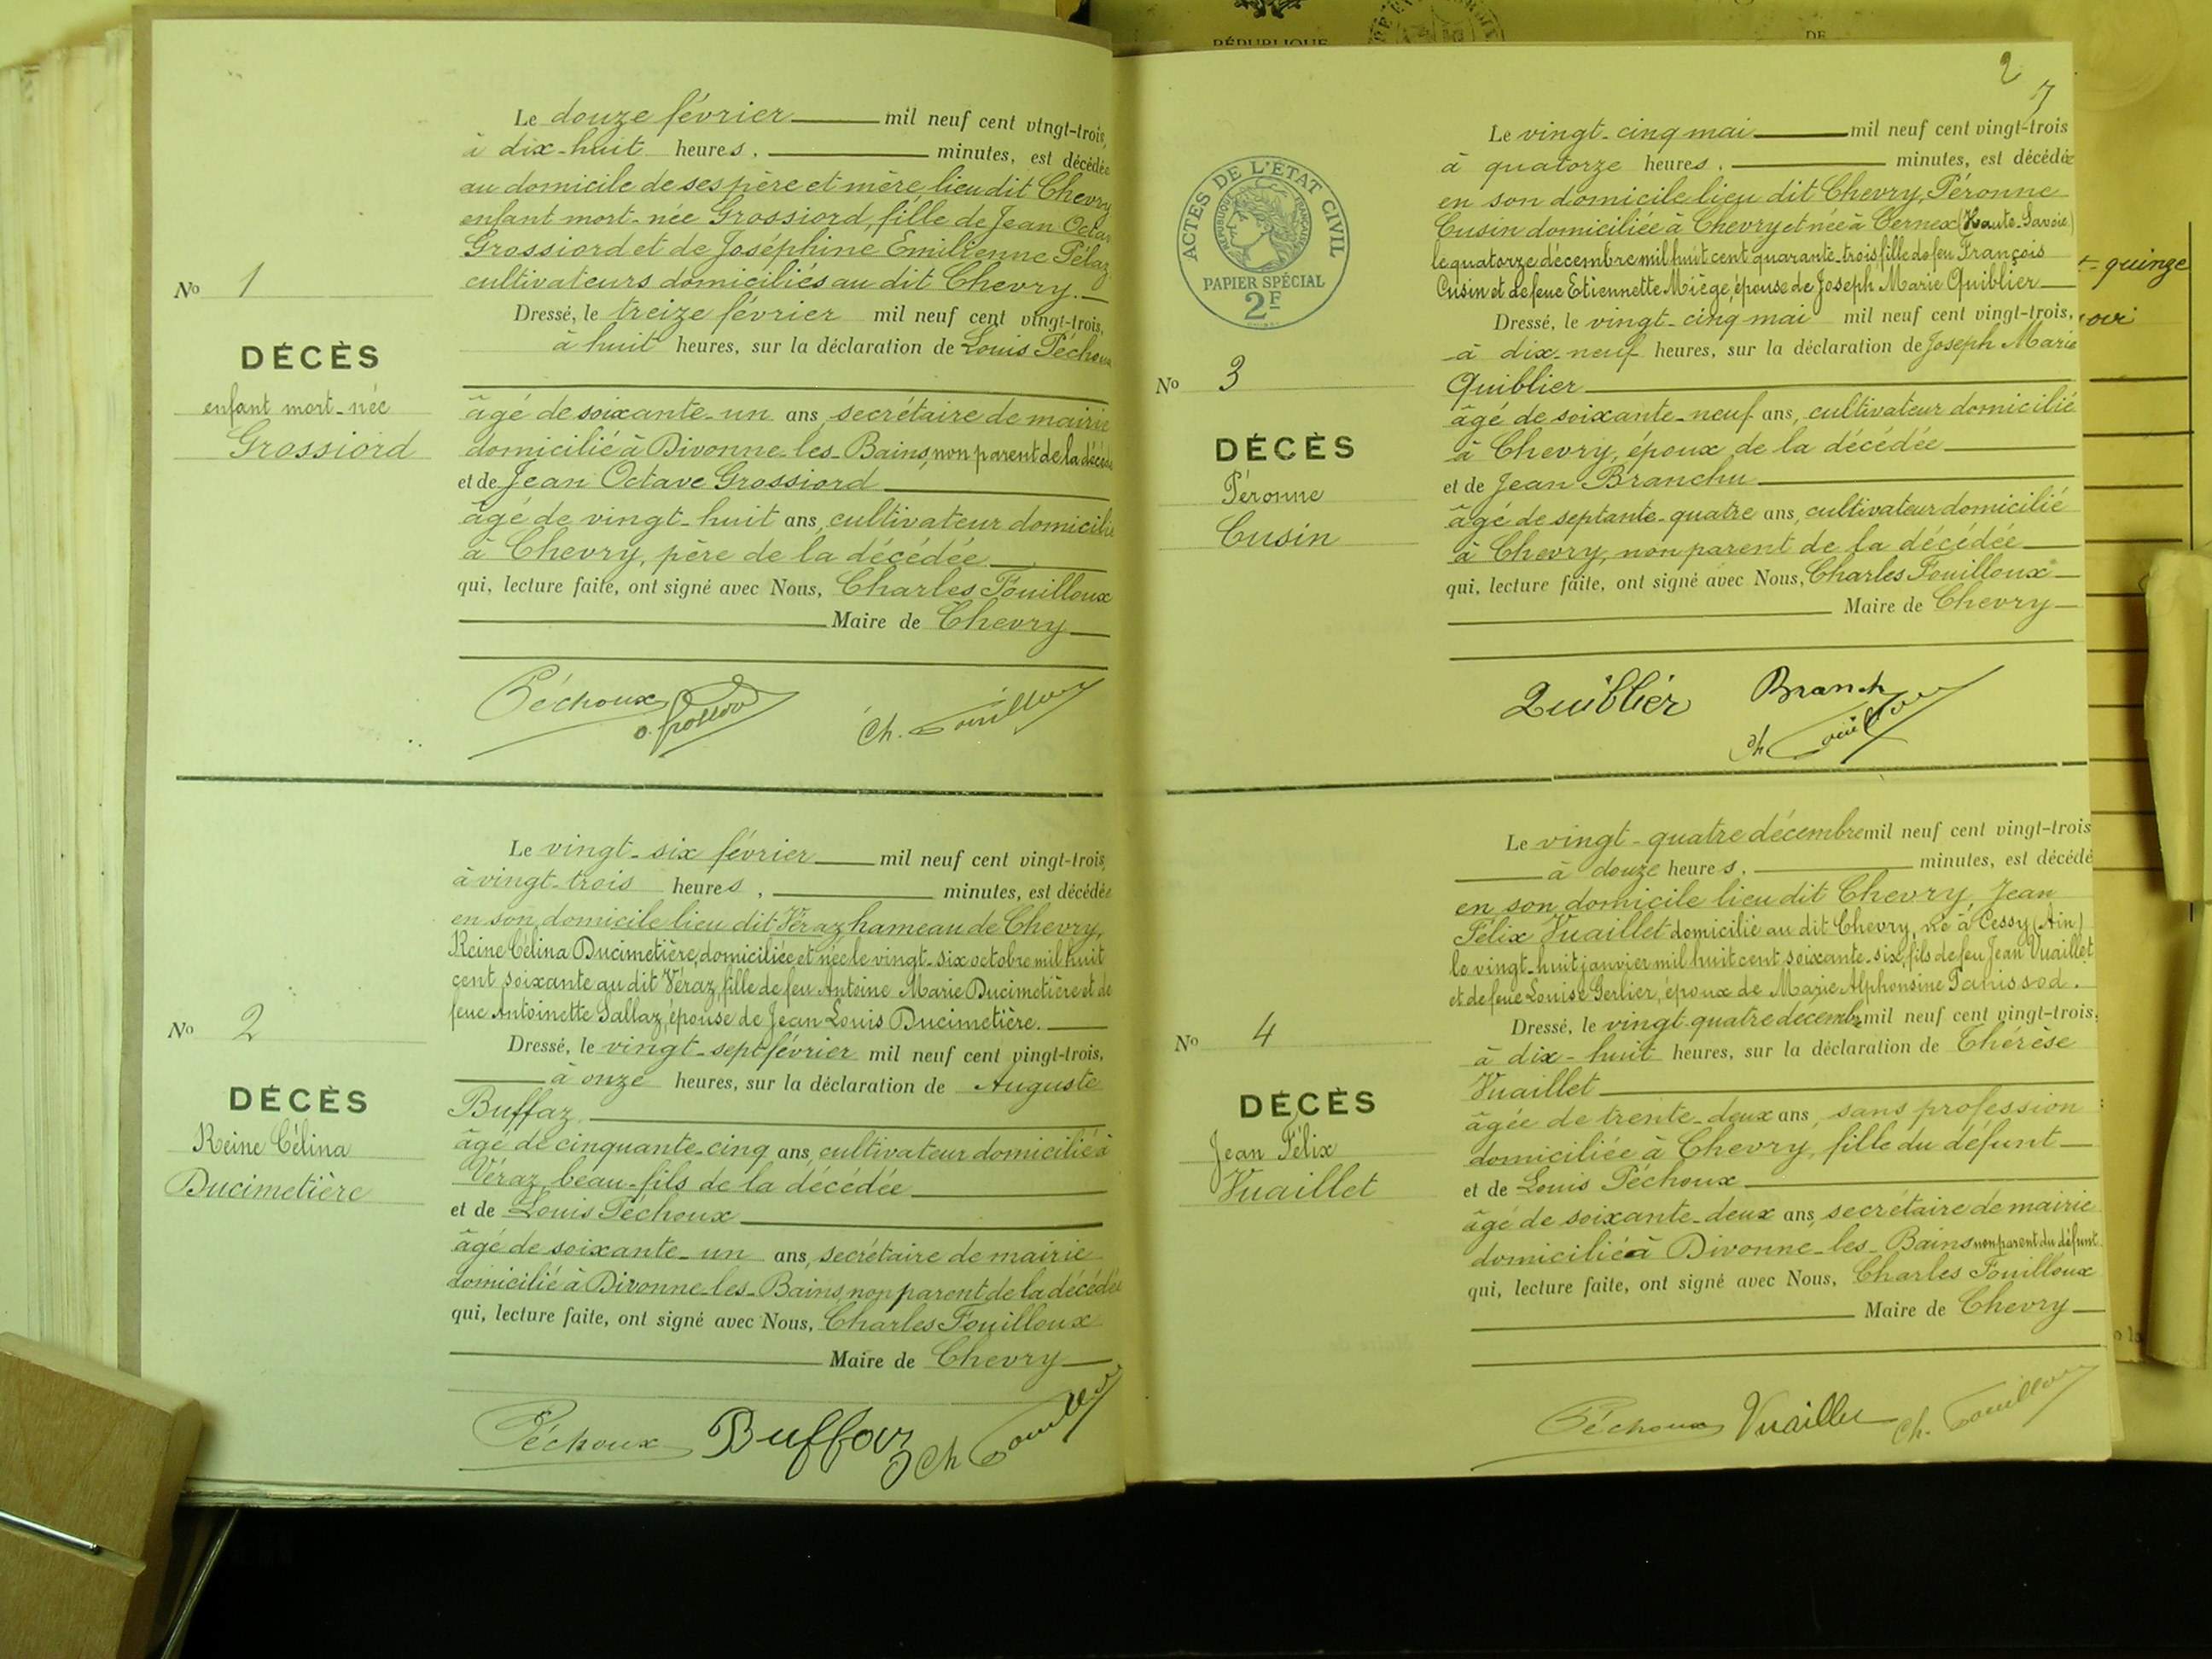 Le douze février mil neuf cent vingt-trois,
à dix-huit heures, minutes, est décédée
au domicile de ses père et mère lieu dit Chevry
enfant mort-née Grossiord, fille de Jean Octave
Grossiord et de Joséphine Emilienne Pélaz
cultivateurs domiciliés au dit Chevry.
Dressé, le treize février mil neuf cent vingt-trois,
à huit heures, sur la déclaration de Louis Péchoux
No 1
DÉCÈS
enfant mort-née
Grossiord
âgé de soixante-un ans, secrétaire de mairie
domicilié à Divonne-les-Bains, non parent de la décédée
et de Jean Octave Grossiord
âgé de vingt-huit ans, cultivateur domicilié
à Chevry, père de la décédée
qui, lecture faite, ont signé avec Nous, Charles Fouilloux
Maire de Chevry
Péchoux
Ch. Fouilloux
Le vingt-six février mil neuf cent vingt-trois,
à vingt-trois heures, minutes, est décédée
en son domicile lieu dit Véraz hameau de Chevry,
Reine Célina Ducimetière, domiciliée et née le vingt-six octobre mil huit
cent soixante au dit Véraz, fille de feu Antoine Marie Ducimetière et de
feue Antoinette Sallaz, épouse de Jean Louis Ducimetière.
Dressé, le vingt-sept février mil neuf cent vingt-trois,
à onze heures, sur la déclaration de Auguste
Buffaz
No 2
DÉCÈS
Reine Célina
Ducimetière
âgé de cinquante-cinq ans, cultivateur domicilié à
Véraz, beau-fils de la décédée
et de Louis Péchoux
âgé de soixante-un ans, secrétaire de mairie
domicilié à Divonne-les-Bains, non parent de la décédée
qui, lecture faite, ont signé avec Nous, Charles Fouilloux
Maire de Chevry
Péchoux Buffaz Ch Fouilloux
RÉPUBLIQUE
DE
2
7
ACTES DE L'ÉTAT CIVIL
RÉPUBLIQUE FRANÇAISE
PAPIER SPÉCIAL
2F
Le vingt-cinq mai mil neuf cent vingt-trois
à quatorze heures, minutes, est décédée
en son domicile lieu dit Chevry, Péronne
Cusin domiciliée à Chevry et née à Cernex (Haute-Savoie)
le quatorze décembre mil huit cent quarante-trois fille de feu François
Cusin et de feue Etiennette Miège, épouse de Joseph Marie Quiblier
Dressé, le vingt-cinq mai mil neuf cent vingt-trois,
à dix-neuf heures, sur la déclaration de Joseph Marie
Quiblier
No 3
DÉCÈS
Péronne
Cusin
âgé de soixante-neuf ans, cultivateur domicilié
à Chevry, époux de la décédée
et de Jean Branchu
âgé de septante-quatre ans, cultivateur domicilié
à Chevry, non parent de la décédée
qui, lecture faite, ont signé avec Nous, Charles Fouilloux
Maire de Chevry
Quiblier Branch
Ch Fouilloux
Le vingt-quatre décembre mil neuf cent vingt-trois
à douze heures, minutes, est décédé
en son domicile lieu dit Chevry, Jean
Félix Vuaillet domicilié au dit Chevry, né à Cessy (Ain)
le vingt-huit janvier mil huit cent soixante-six, fils de feu Jean Vuaillet
et de feue Louise Gerlier, époux de Marie Alphonsine Panissod.
Dressé, le vingt quatre décembre mil neuf cent vingt-trois,
à dix-huit heures, sur la déclaration de Thérèse
Vuaillet
No 4
DÉCÈS
Jean Félix
Vuaillet
âgée de trente-deux ans, sans profession
domiciliée à Chevry, fille du défunt
et de Louis Péchoux
âgé de soixante-deux ans, secrétaire de mairie
domicilié à Divonne-les-Bains non parent du défunt
qui, lecture faite, ont signé avec Nous, Charles Fouilloux
Maire de Chevry
Péchoux Vuaillet Ch. Fouilloux
quinze